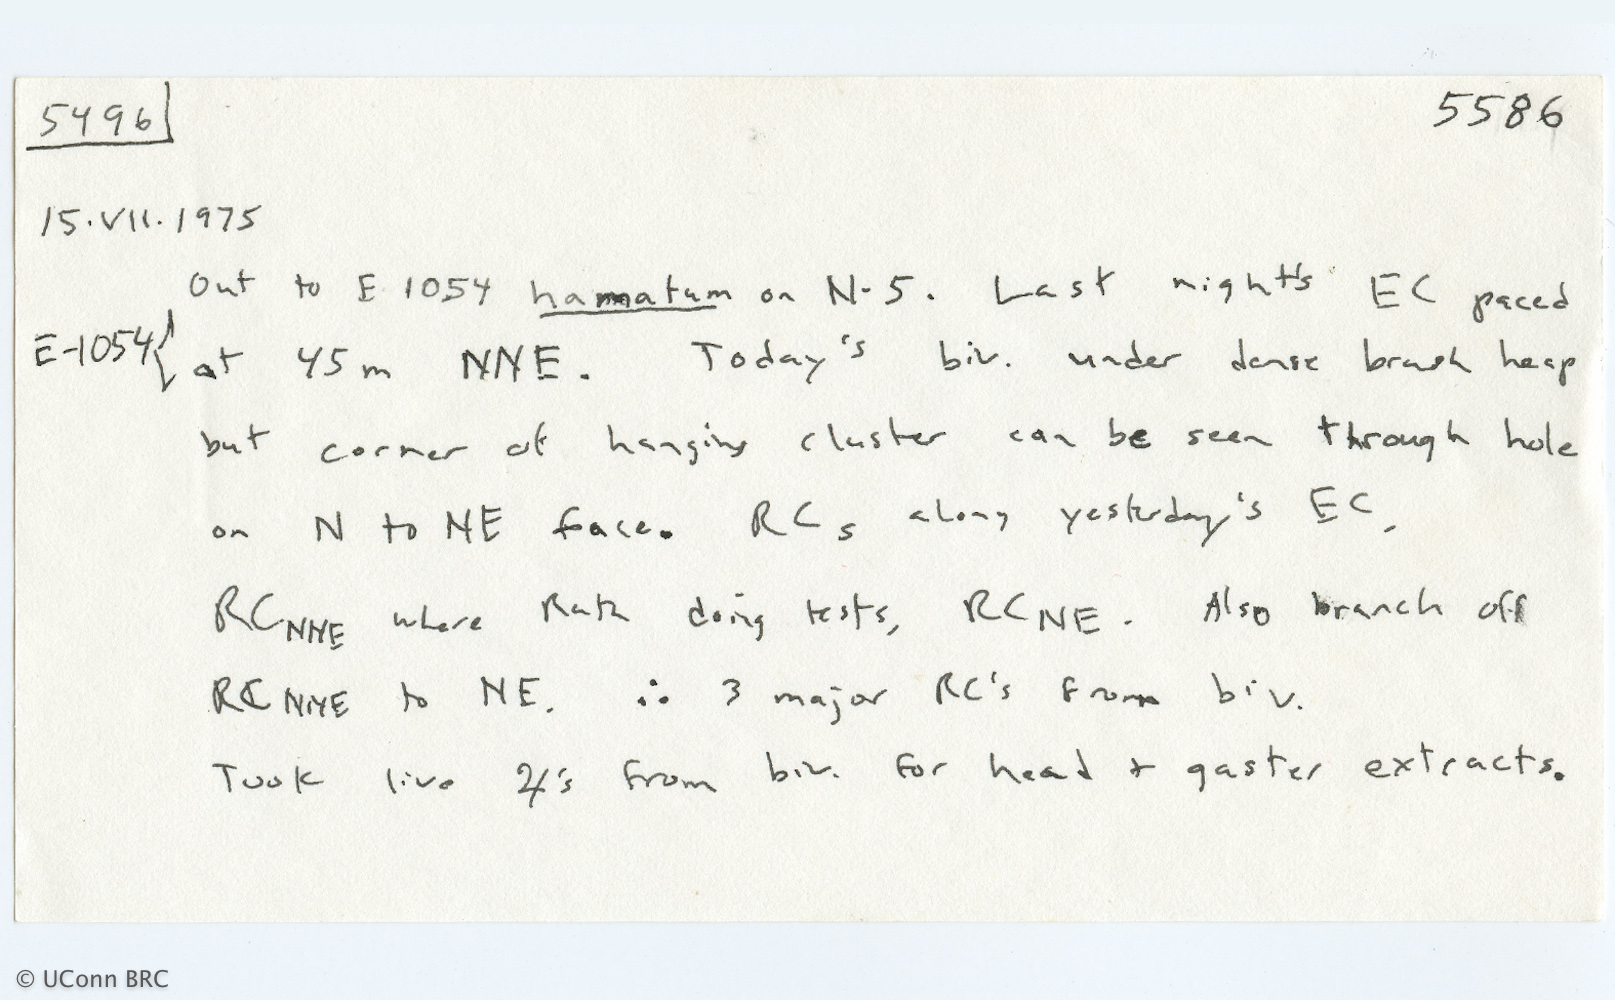 5496
5586
15.VII.1975
Out to E 1054 hamatum on N-5. Last night's EC paced
E-1054 { at 45m NNE. Today's biv. under dense brush heap
but corner of hanging cluster can be seen through hole
on N to NE face. RCs along yesterday's EC,
RC NNE where Ruth doing tests, RC NE. Also branch off
RC NNE to NE. ∴ 3 major RC's from biv.
Took live ☿'s from biv. for head + gaster extracts.
© UConn BRC